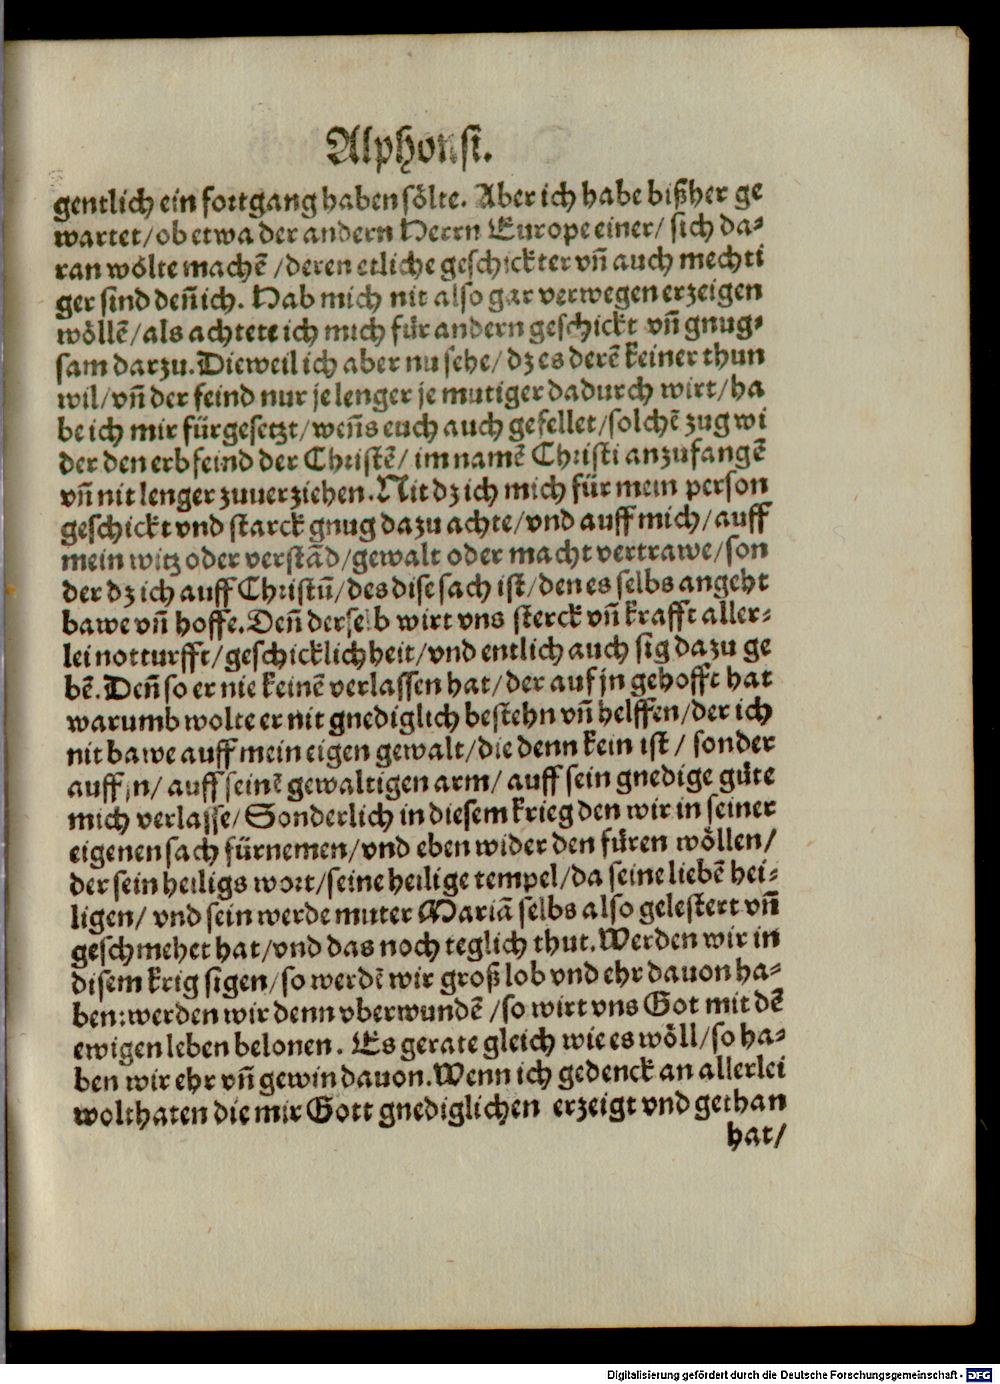 Alphonsi.
gentlich ein fortgang haben sölte. Aber ich habe bißher ge
wartet/ ob etwa der andern Herrn Europe einer/ sich da-
ran wölte machē /deren etliche geschickter vñ auch mechti
ger sind deñ ich. Hab mich nit also gar verwegen erzeigen
wöllē/ als achtete ich mich für andern geschickt vñ gnug-
sam darzu. Dieweil ich aber nu sehe/ dz es derē keiner thun
wil/ vñ der feind nur je lenger je mutiger dadurch wirt/ ha
be ich mir fürgesetzt/ weñs euch auch gefellet/ solchē zug wi
der den erbfeind der Christē/ im namē Christi anzufangē
vñ nit lenger zuuerziehen. Nit dz ich mich für mein person
geschickt vnd starck gnug dazu achte/ vnd auff mich/ auff
mein witz oder verstād/ gewalt oder macht vertrawe/ son
der dz ich auff Christū/ des dise sach ist/ den es selbs angeht
bawe vñ hoffe. Deñ derselb wirt vns sterck vñ krafft aller-
lei notturfft/ geschicklichheit/ vnd entlich auch sig dazu ge
bē. Deñ so er nie keinē verlassen hat/ der auf jn gehofft hat
warumb wolte er nit gnediglich bestehn vñ helffen/ der ich
nit bawe auff mein eigen gewalt/ die denn kein ist / sonder
auff jn/ auff seinē gewaltigen arm/ auff sein gnedige güte
mich verlasse/ Sonderlich in diesem krieg den wir in seiner
eigenen sach fürnemen/ vnd eben wider den füren wöllen/
der sein heiligs wort/ seine heilige tempel/ da seine liebē hei-
ligen/ vnd sein werde muter Mariā selbs also gelestert vñ
geschmehet hat/ vnd das noch teglich thut. Werden wir in
disem krig sigen/ so werdē wir groß lob vnd ehr dauon ha-
ben: werden wir denn vberwundē /so wirt vns Got mit dē
ewigen leben belonen. Es gerate gleich wie es wöll/ so ha-
ben wir ehr vñ gewin dauon. Wenn ich gedenck an allerlei
wolthaten die mir Gott gnediglichen erzeigt vnd gethan
hat/
Digitalisierung gefördert durch die Deutsche Forschungsgemeinschaft - DFG